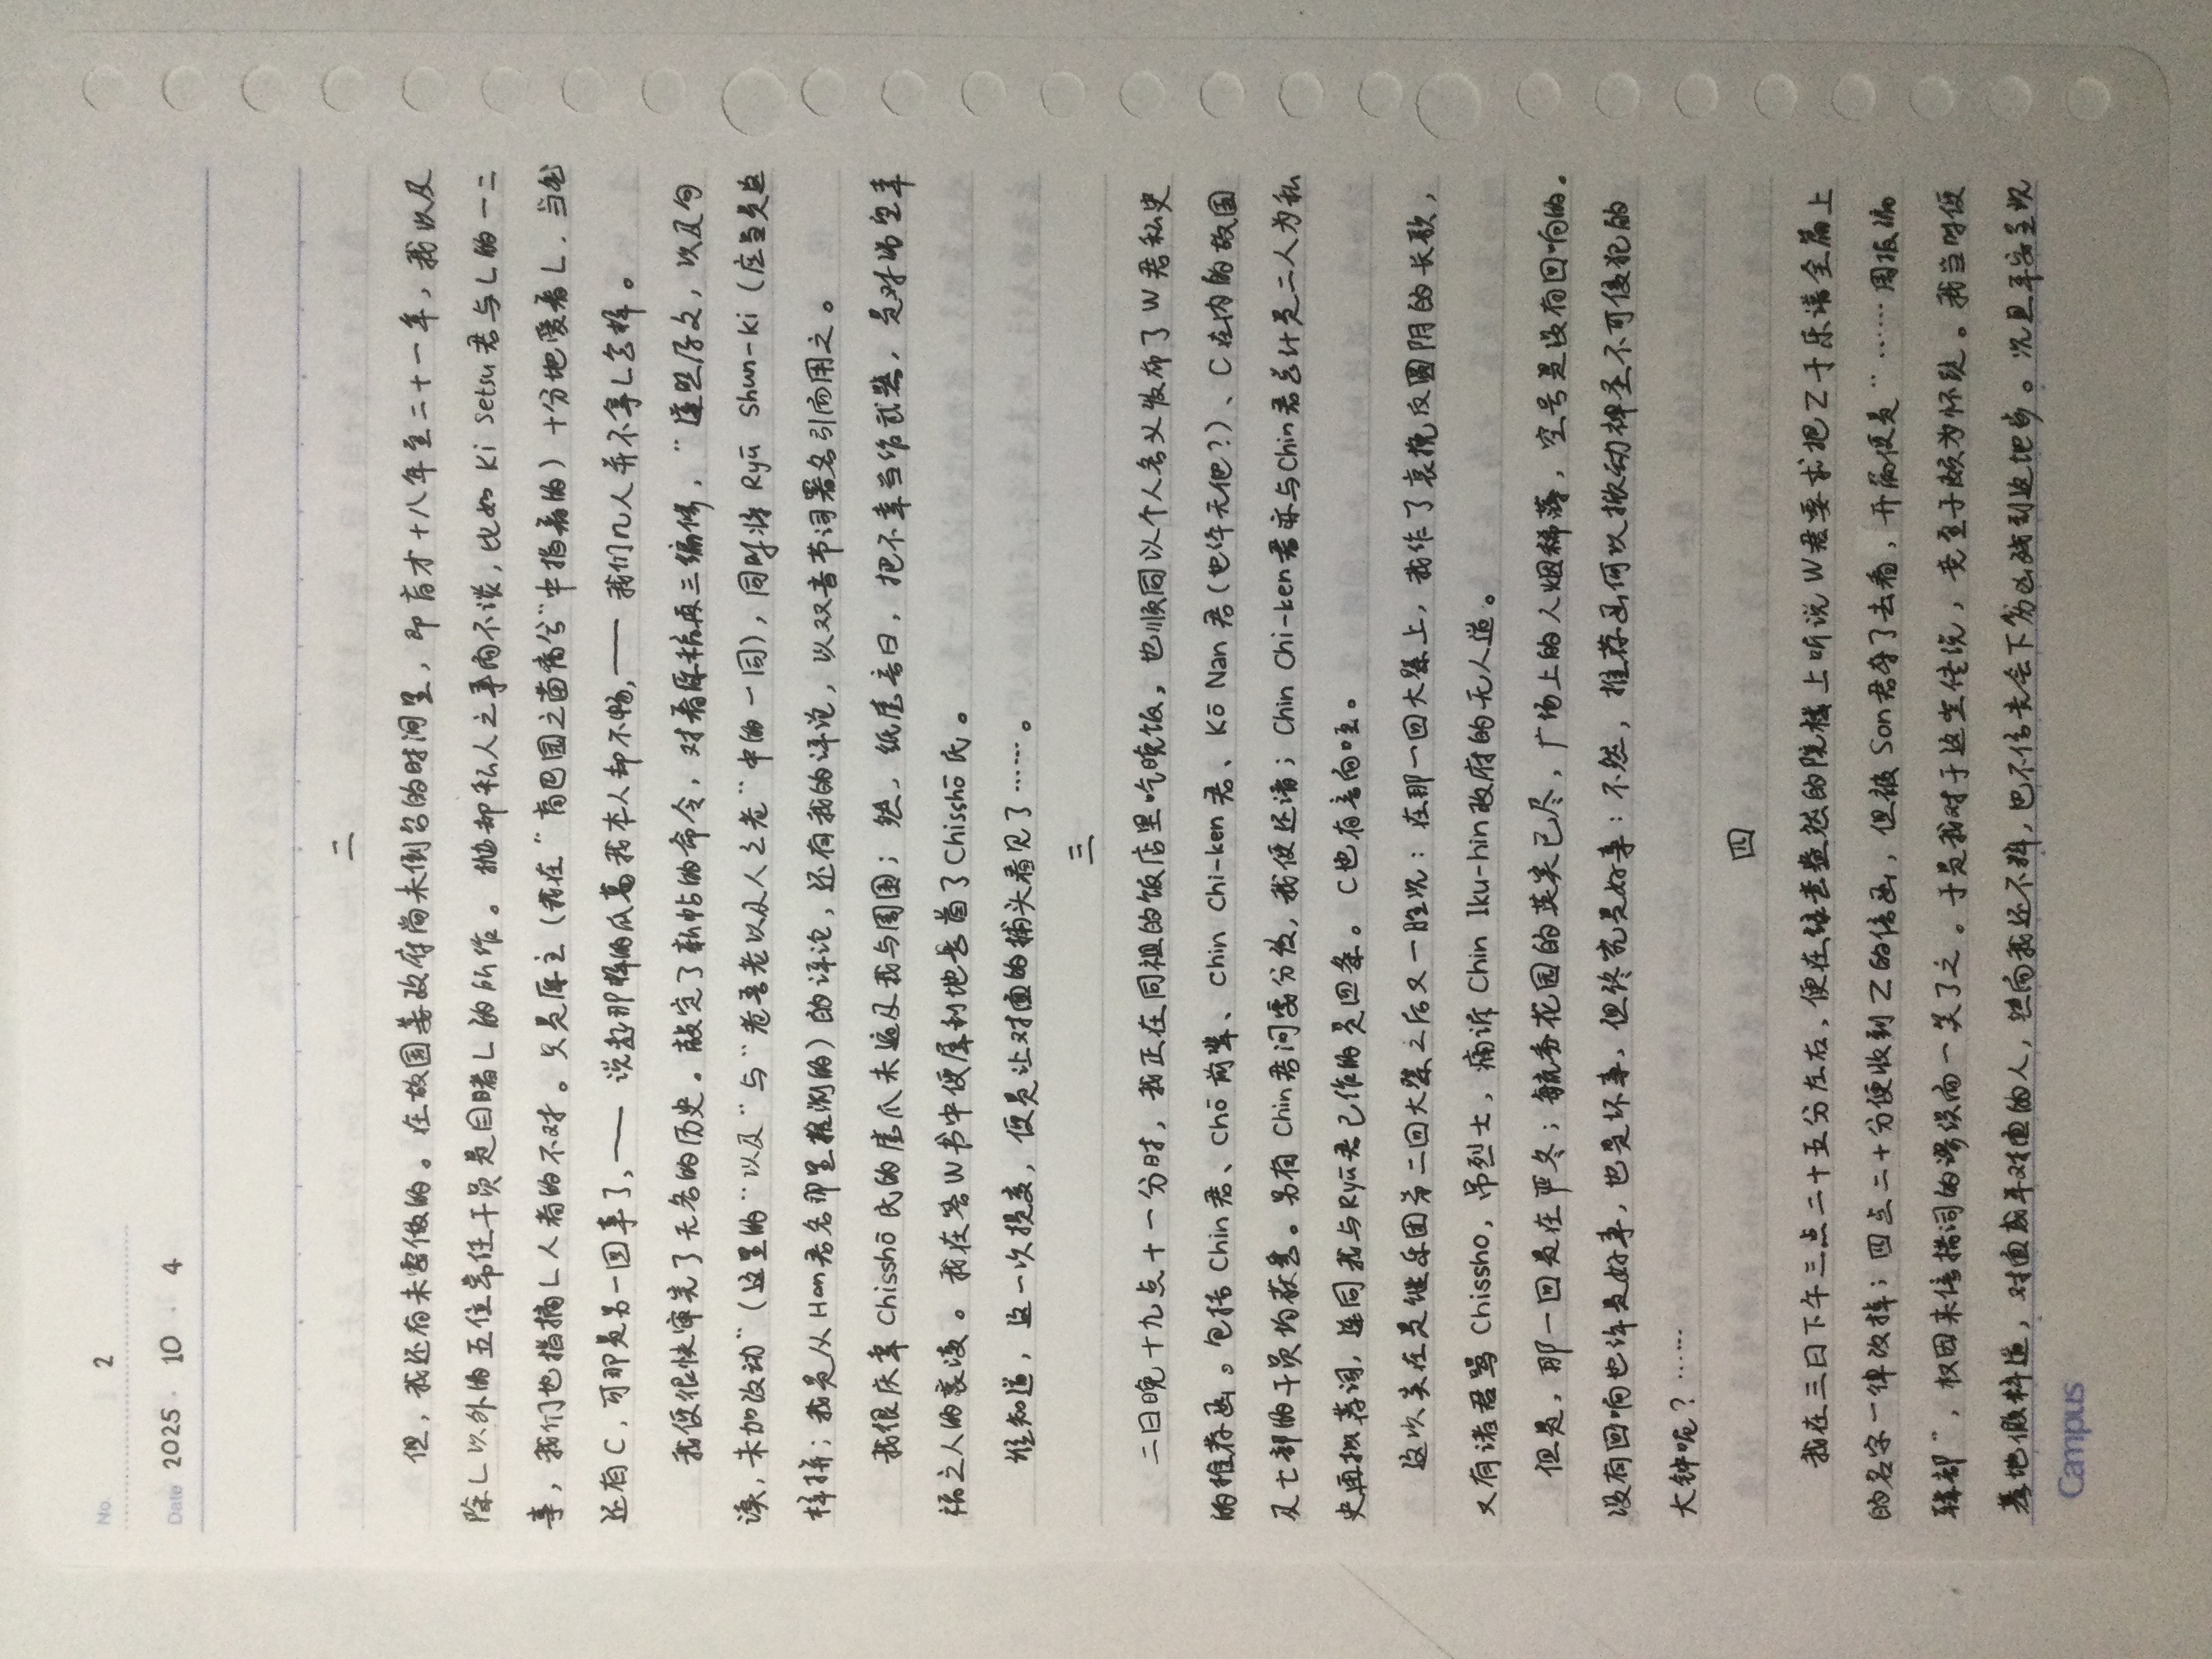 No. 2
Date 2025 · 10 · 4
二
但，我还有未尝做的。在故园姜政府尚未倒台的时间里，即育才十八年至二十一年，我以及
除L以外的五位常任干员是目睹L的所作。抛却私人之事而不谈，比如 Ki Setsu 君与L的一二
事，我们也指摘L人者的不对。只是厚主（我在“育巴园之苗裔兮”中指着的）十分地爱着L，当然
还有C，可那是另一回事了，—— 说起那样的瓜葛我本人却不畅，—— 我们几人并不拿L怎样。
我便很快审完了无名的历史。敲定了新帖的命令，对着原稿再三编修，“遵照原文，以及句
读，未加改动”（这里的“以及”与“老吾老以及人之老”中的一同），同时将 Ryū Shun-ki（应当是这
样拼；我是从Han君名那里推测的）的评论，还有我的评论，以双音节词署名引而用之。
我很庆幸 Chisshō 氏的魔爪未遍及我与周围；然，纸虚言曰，把不幸当作武器，是对渴望幸
福之人的亵渎。我在答W书中便犀利地悬首了Chisshō氏。
谁知道，这一次提交，便是让对面的捕头看见了……。
三
二日晚十九点十一分时，我正在同祖的饭店里吃晚饭，也顺同以个人名义发布了W君私史
的推荐函。包括 Chin 君、Chō 前辈、Chin Chi-ken 君、Kō Nan 君（也许无他？）、C在内的故国
及七部的干员均获悉。另有Chin君问要分发，我便还请；Chin Chi-ken君亦与Chin君总计是二人为私
史再拟荐词，连同我与Ryū君已作的是四条。C也有意向哇。
这次实在是继乐团第二回大祭之后又一胜况：在那一回大祭上，我作了哀挽反圆阴的长歌，
又有诸君骂 Chissho，吊烈士，痛诉 Chin Iku-hin政府的无人道。
但是，那一回是在严冬；毓秀花园的英实已尽，广场上的人烟稀薄，空号是没有回响的。
没有回响也许是好事，也是坏事，但终究是好事：不然，推荐函何以撼动神圣不可侵犯的
大钟呢？……
四
我在三日下午三点二十五分左右，便在绿意盎然的院楼上听说W君要求把Z于乐谱全篇上
的名字一律改掉；四点二十分便收到Z的信函，但被Son君夺了去看，开篇便是“……周报编
辑部”，权因来信措词的谬误而一笑了之。于是我对于这些传说，竟至于颇为怀疑。我当时便
恶地假料道，对面或半对面的人，然而我还不料，也不信竟会下劣凶残到这地步。况且平安呈现
Campus